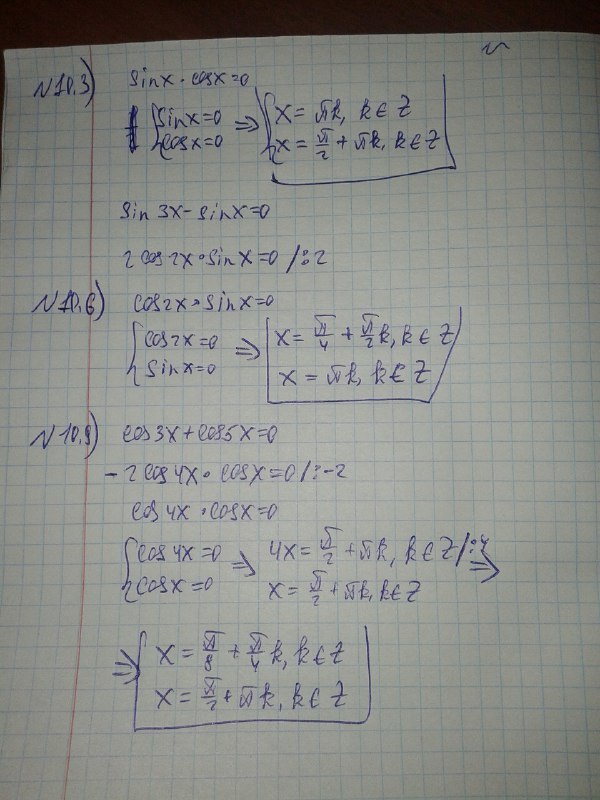 N10.3) sinx · cosx=0
{ sinx=0 ⇒ { x = πk, k∈Z
{ cosx=0 { x = π/2 + πk, k∈Z
sin 3x - sinx=0
2 cos 2x · sin x = 0 /:2
N10.6) cos2x · sinx=0
{ cos2x=0 ⇒ [ x = π/4 + π/2 k, k∈Z
{ sinx=0 [ x = πk, k∈Z
N10.9) cos3x + cos5x=0
- 2 cos4x · cosx = 0 /:-2
cos4x · cosx=0
{ cos4x=0 ⇒ 4x = π/2 + πk, k∈Z /:4 ⇒
{ cosx=0 x = π/2 + πk, k∈Z
⇒ { x = π/8 + π/4 k, k∈Z
{ x = π/2 + πk, k∈Z